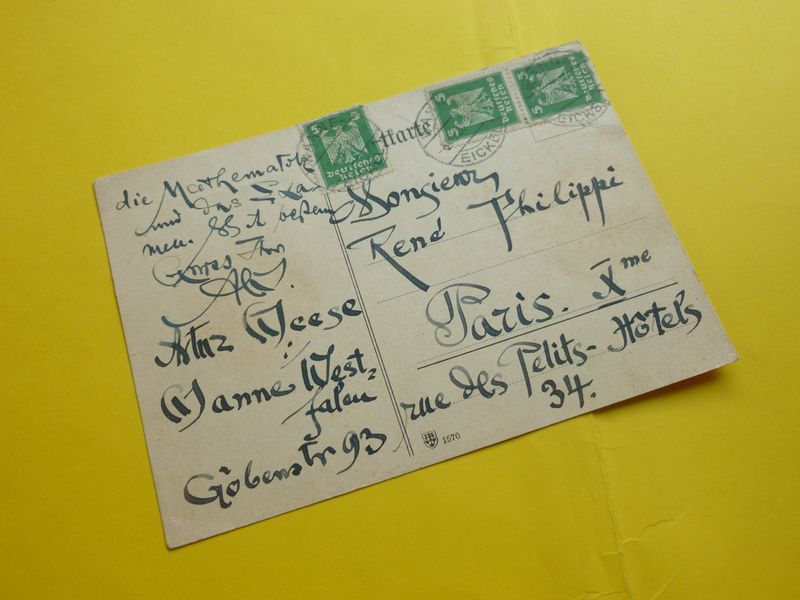 tkarte
die Mathematik
und das Exa-
men. Mit besten
Grüss Ihr
Monsieur
René Philippi
Paris. Xme
rue des Petits-Hôtels
34.
Artur Weese
i/
Wanne West-
falen
Göbenstr 93
1570
5
Deutsches
Reich
5
Deutsches
Reich
5
Deutsches
Reich
EICK
EICK